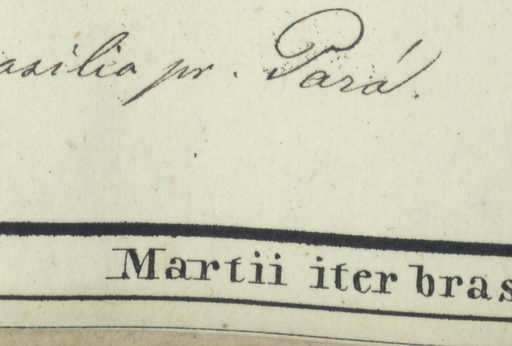 asilia pr. Pará.
Martii iter bras